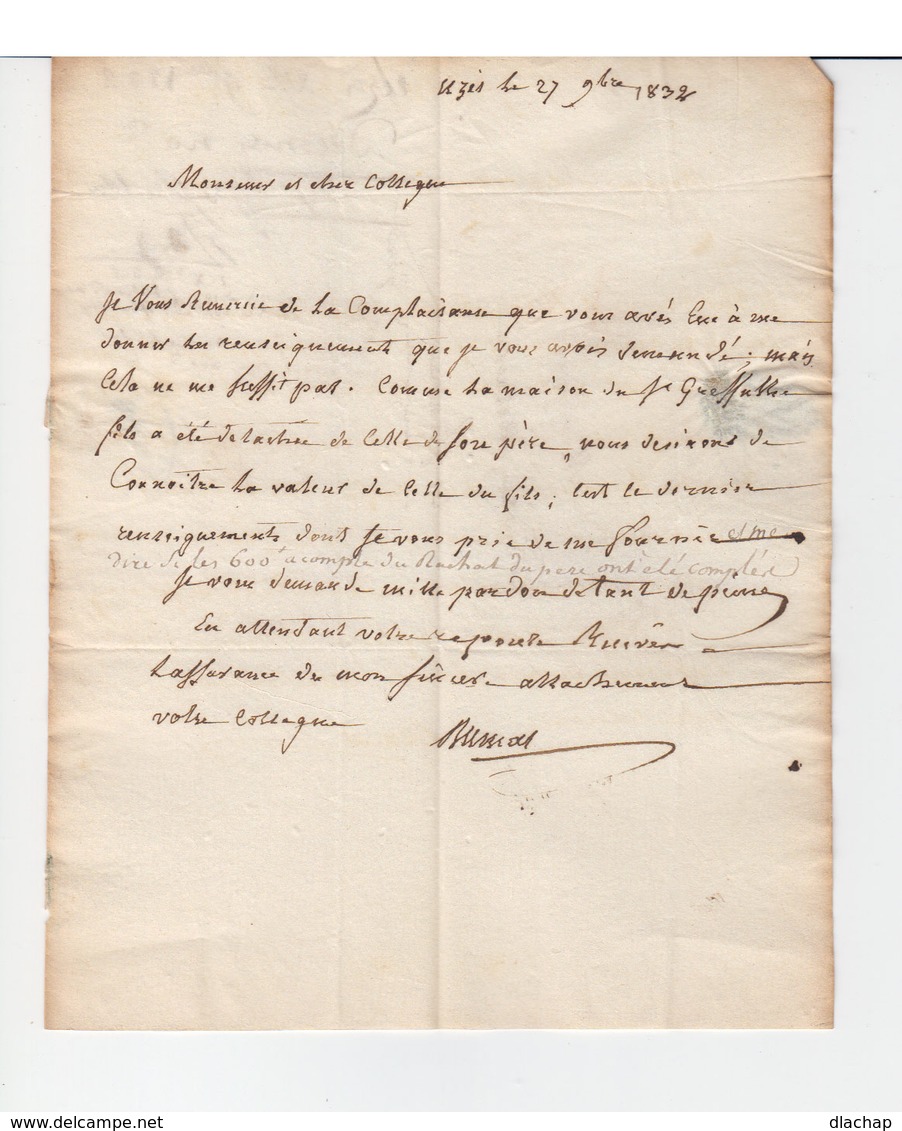 Uzès le 27 9bre 1832
Monsieur et cher Collegue
Je Vous Remercie de la Complaisance que vous avés Eue à me
donner les renseignements que je vous avois demandé ; mais
Cela ne me suffit pas. Comme la maison du Sr Greffulhe
fils a été detachée de Celle de son père, nous desirons de
Connoitre la valeur de Celle du fils ; C'est le dernier
renseignements dont Je vous prie de me fournir et me
dire si les 600f acompte du Rachat du pere ont été complés
Je vous demande mille pardon de tant de peine
En attendant votre reponse Recevés
Lassurance de mon sincere attachement
votre Collegue
delcampe.net
dlachap